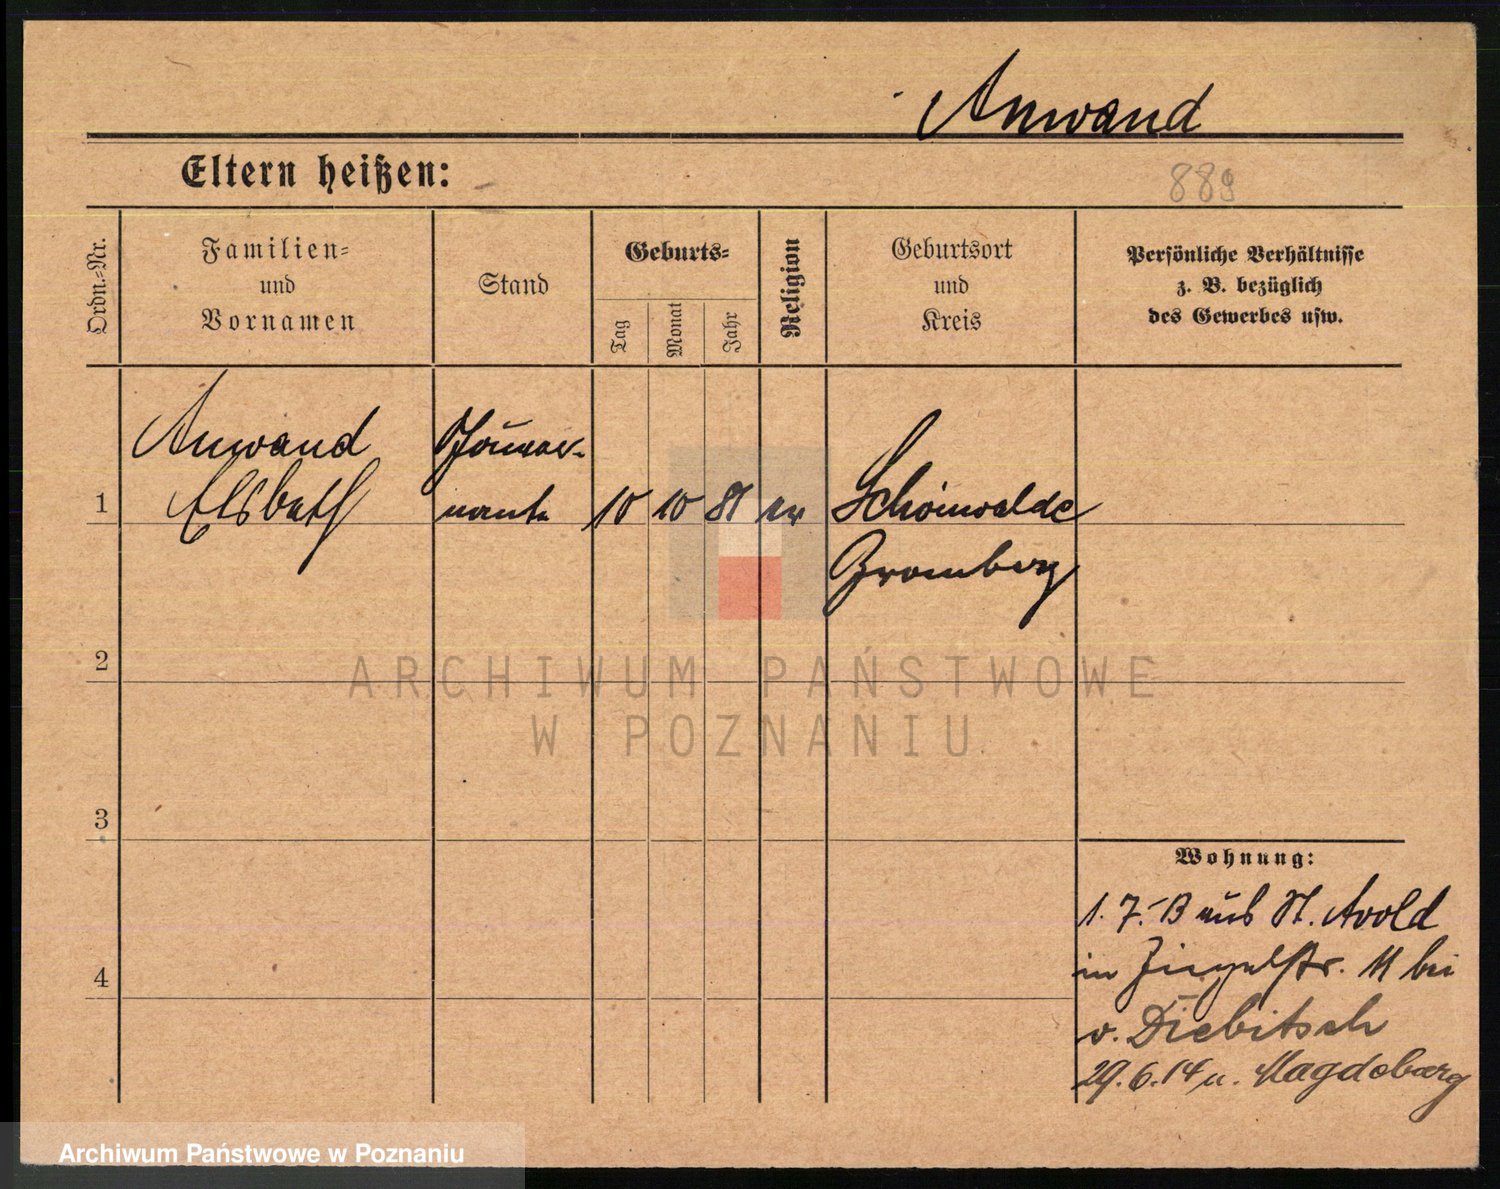 Anwand
Eltern heißen:
889
Ordn.-Nr.
Familien-
und
Vornamen
Stand
Geburts-
Tag
Monat
Jahr
Religion
Geburtsort
und
Kreis
Persönliche Verhältnisse
z. B. bezüglich
des Gewerbes usw.
Anwand
Elsbeth
1
10 10 81 ev
Schönwalde
Bromberg
2
ARCHIWUM PAŃSTWOWE
W POZNANIU
3
Wohnung:
1. 7. 13 aus St. Avold
in Ziegelstr. 11 bei
4
v. Diebitsch
29.6.14 n. Magdeburg
Archiwum Państwowe w Poznaniu